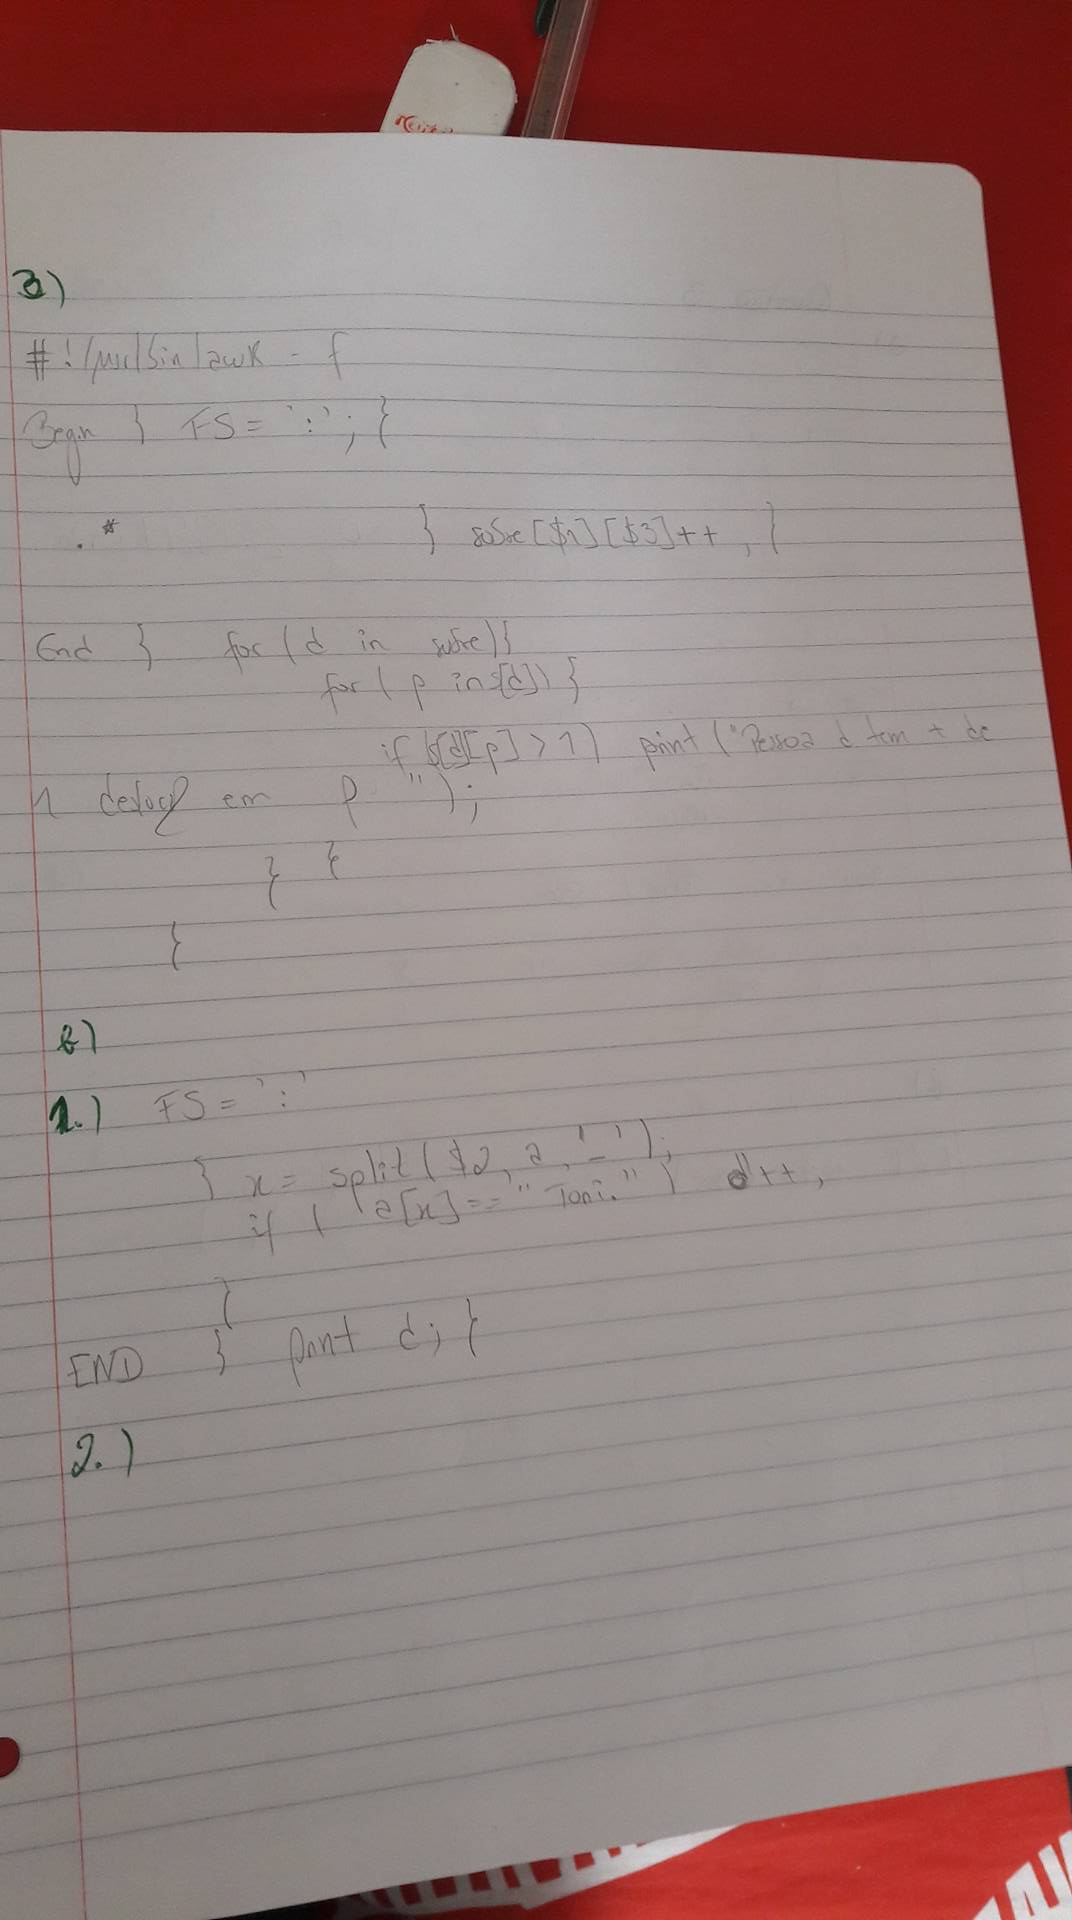 a)
#!/usr/bin/awk - f
Begin } FS = ':'; {
.* } sobre[$1][$3]++; }
End } for (d in sobre){
for ( p in s[d]) {
if (s[d][p] > 1) print ("Pessoa d tem + de
1 em p ");
} }
}
b)
1.) FS = ':'
} x = split($2, a, '_');
if ( a[x]=="Toni." ) d++;
}
END } print d; }
2.)